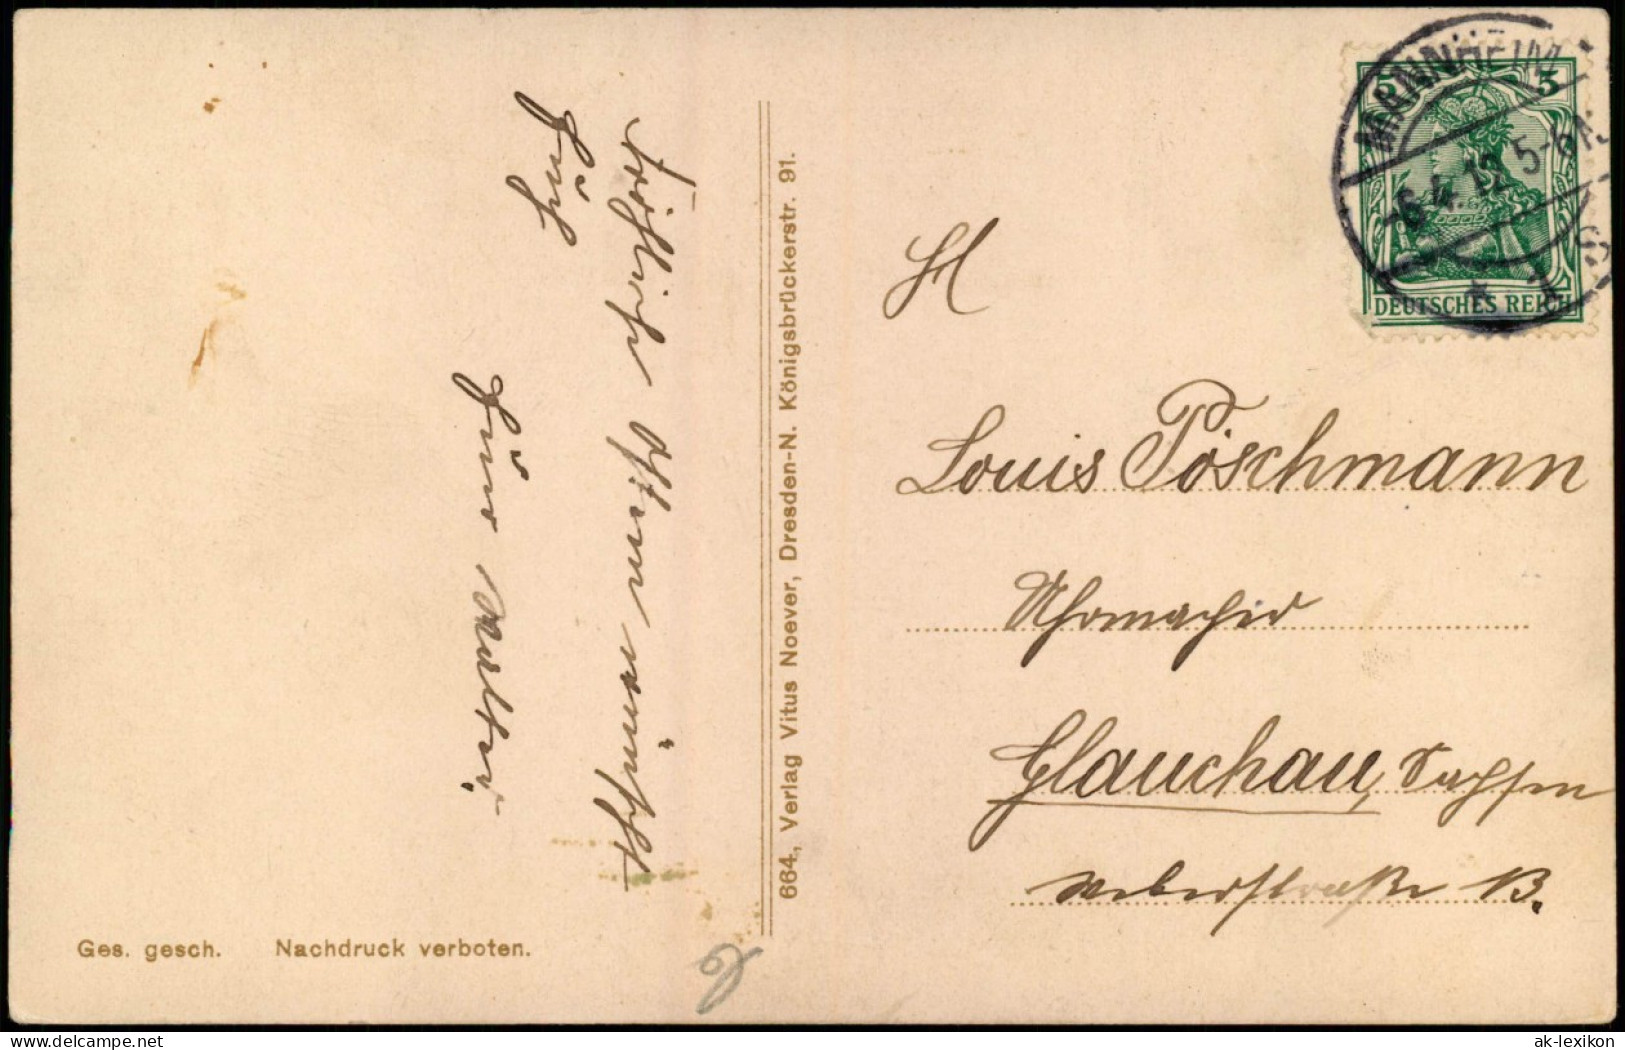 Fröhliche Ostern wünscht
Euch
Euer Walter
664., Verlag Vitus Noever, Dresden-N. Königsbrückerstr. 91.
Ges. gesch. Nachdruck verboten.
MANNHEIM
-6.4.12 5-6N
DEUTSCHES REICH
H
Louis Pöschmann
Uhrmacher
Glauchau, Sachsen
Weberstraße 13.
ak-lexikon